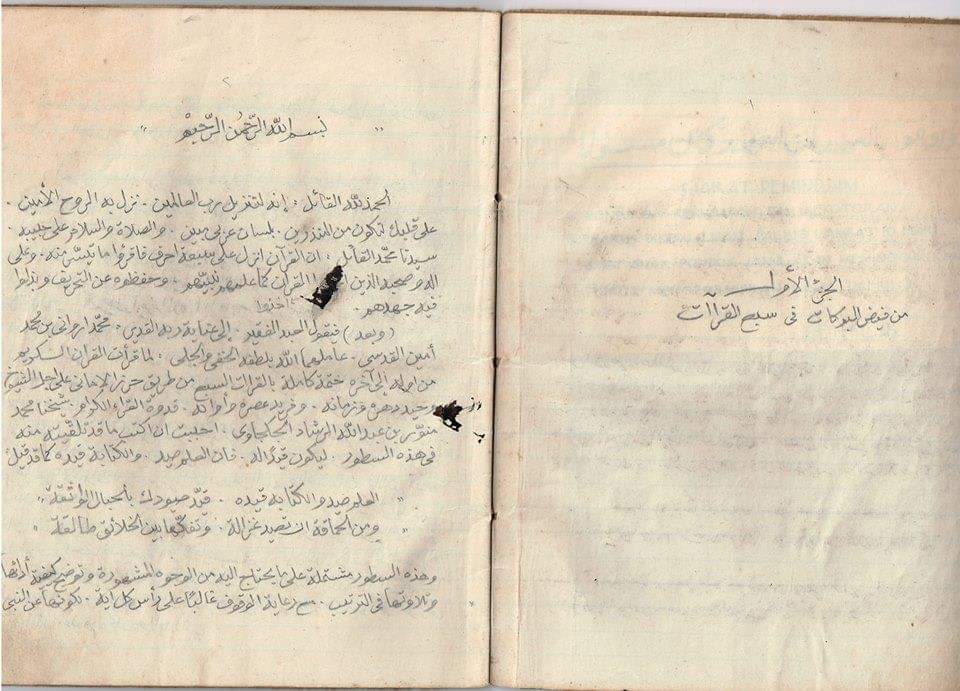 ١
الجزء الأول
من فيض البركات فى سبع القرآآت
٢
" بسم الله الرَّحمن الرَّحيم "
الحمد لله القائل . إنه لتنزيل رب العالمين . نزل به الروح الأمين .
على قلبك لتكون من المنذرين . بلسان عربي مبين . والصلاة والسلام على حبيبه
سيدنا محمد القائل . ان القرآن انزل على سبعة احرف فاقرؤا ما تيسّر منه . وعلى
اله وصحبه الذين القرآن كما علمهم نبيّهم . وحفظوه عن التحريف وبذلوا
فيه جهدهم .
( وبعد ) فيقول العبد الفقير . إلى عناية ربه القدير . محمّد اروانى بن محمد
أمين القدسي . عاملهما الله بلطفه الخفي والجلي . لما قرأت القران الكريم
من اوله إلى آخره ختمة كاملة بالقراآت السبع من طريق حرز الامانى على الشيخ
وحيد دهره وزمانه . وفريد عصره وأوانه . قدوة القراء الكرام . شيخنا محمد
منوّر بن عبد الله الرشاد الجكجاوى . احببت ان اكتب ما قد تلقّيته منه
فى هذه السطور . ليكون قيدًا له . فان العلم صيد . والكتابة قيده كما قد قيل
" العلم صيد والكتابة قيده . قيّد صيودك بالحبال الواثقة "
" ومن الحماقة ان تصيد غزالة . وتفكها بين الخلائق طالقة "
وهذه السطور مشتملة على ما يحتاج اليه من الوجوه المشهورة وتوضيح كيفية أدائها
وتلاوتها فى الترتيب . مع رعاية الوقوف غالبًا على رأس كل اية . لكونها عن النبي